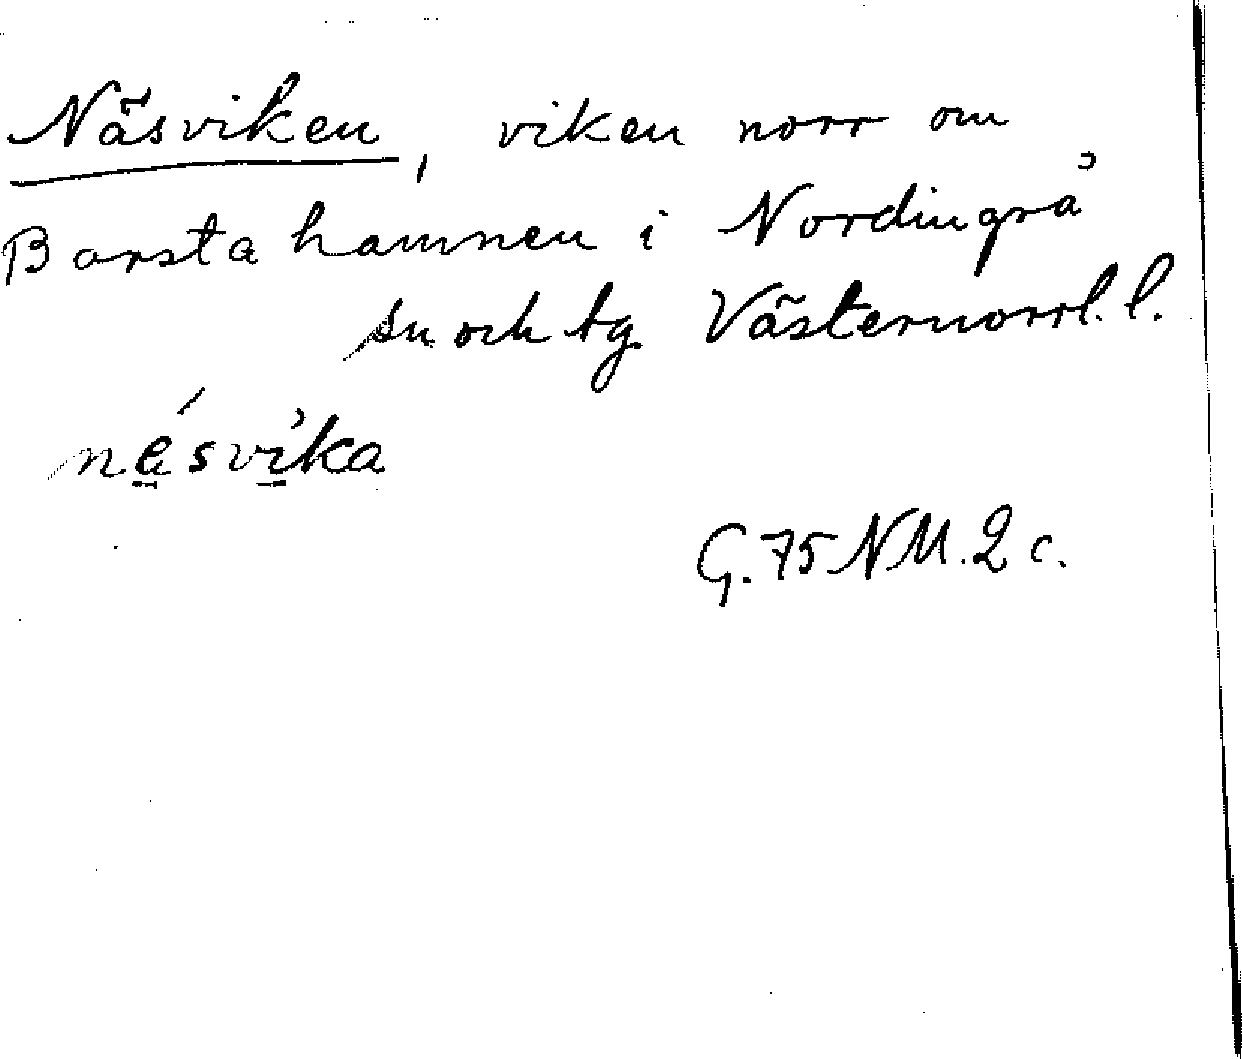 Näsviken, viken norr om
Barstahamnen i Nordingrå
sn och tg Västernorrl. l.
né̱svì̱ka
G. 75 NM. 2 c.